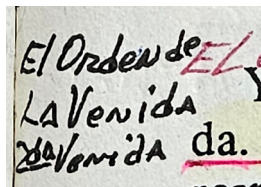 El Orden de EL
La Venida
2da Venida da.